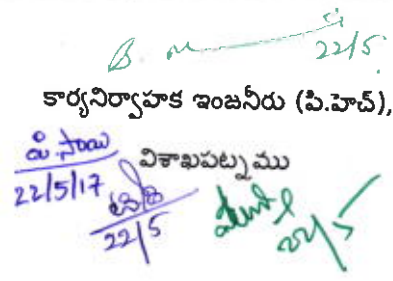 22/5
కార్యనిర్వాహక ఇంజనీరు (పి.హెచ్),
పి.సాయి విశాఖపట్నము
22/5/17
22/5
22/5